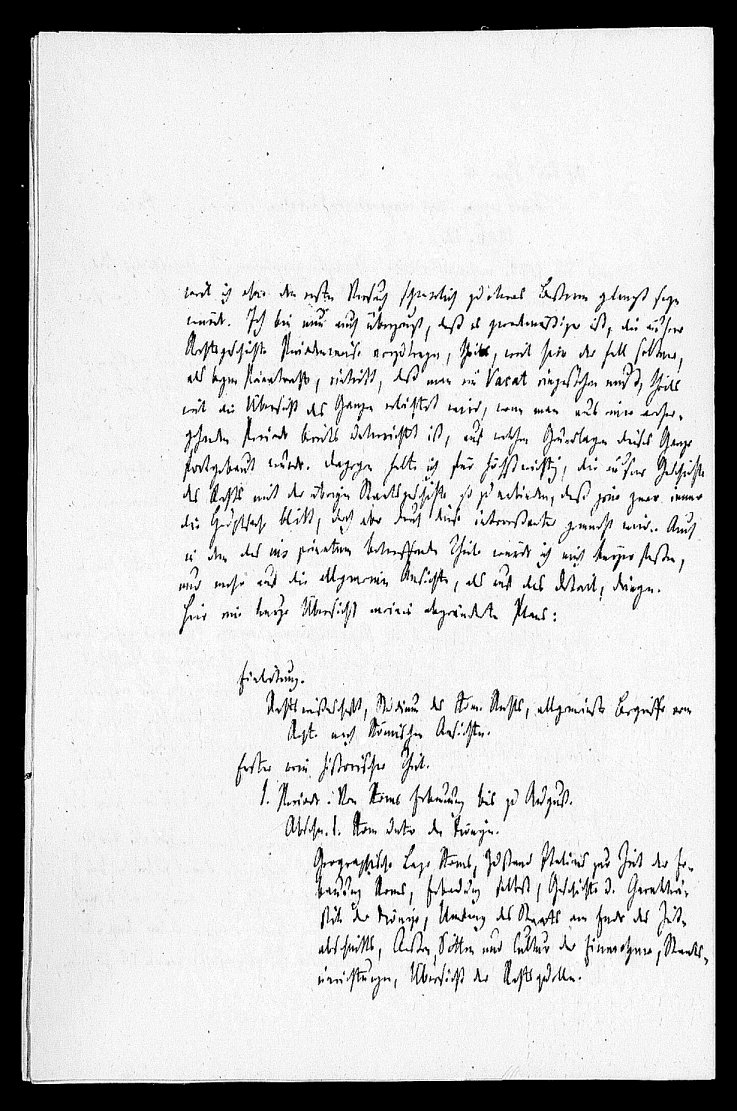 werde ich aber den ersten Versuch schwerlich zu etwas Besserem gelangt seyn
würde. Ich bin nun auch überzeugt, daß es zweckmäßiger ist, die äußere
Rechtsgeschichte Periodenweise vorzutragen, theils, weil sein der Fall seltner,
als beym Privatrechte, eintritt, daß man ein Vacat eingestehen muß, theils
weil die Übersicht des Ganzen erleichtert wird, wenn man aus einer vorher-
gehenden Periode bereits unterrichtet ist, aus welchen Grundlagen dieses Ganze
fortgebaut wurde. Dagegen halte ich für höchst wichtig, die äußere Geschichte
des Rechts mit der übrigen Staatsgeschichte so zu verbinden, daß jene zwar immer
die Hauptsache bleibt, doch aber durch diese interessanter gemacht wird. Auch
in dem das ius privatum betreffenden Theile würde ich mich kürzer fassen,
und mehr auf die allgemeinen Ansichten, als auf das Detail, dringen.
Hier eine kurze Übersicht meines abgeänderten Plans:
Einleitung.
Rechtswissenschaft, Studium des Röm. Rechts, allgemeinste Begriffe vom
Recht nach Römischen Ansichten.
Erster rein historischer Theil.
1. Periode: Von Roms Erbauung bis zu August.
Abschn. 1. Rom unter den Königen.
Geographische Lage Roms, Zustand Italiens zur Zeit der Er-
bauung Roms, Erbauung selbst, Geschichte u. Characteri-
stik der Könige, Umfang des Staats am Ende des Zeit-
abschnitts, Sitten und Cultur der Einwohner, Staats-
einrichtungen, Übersicht der Rechtsquellen.